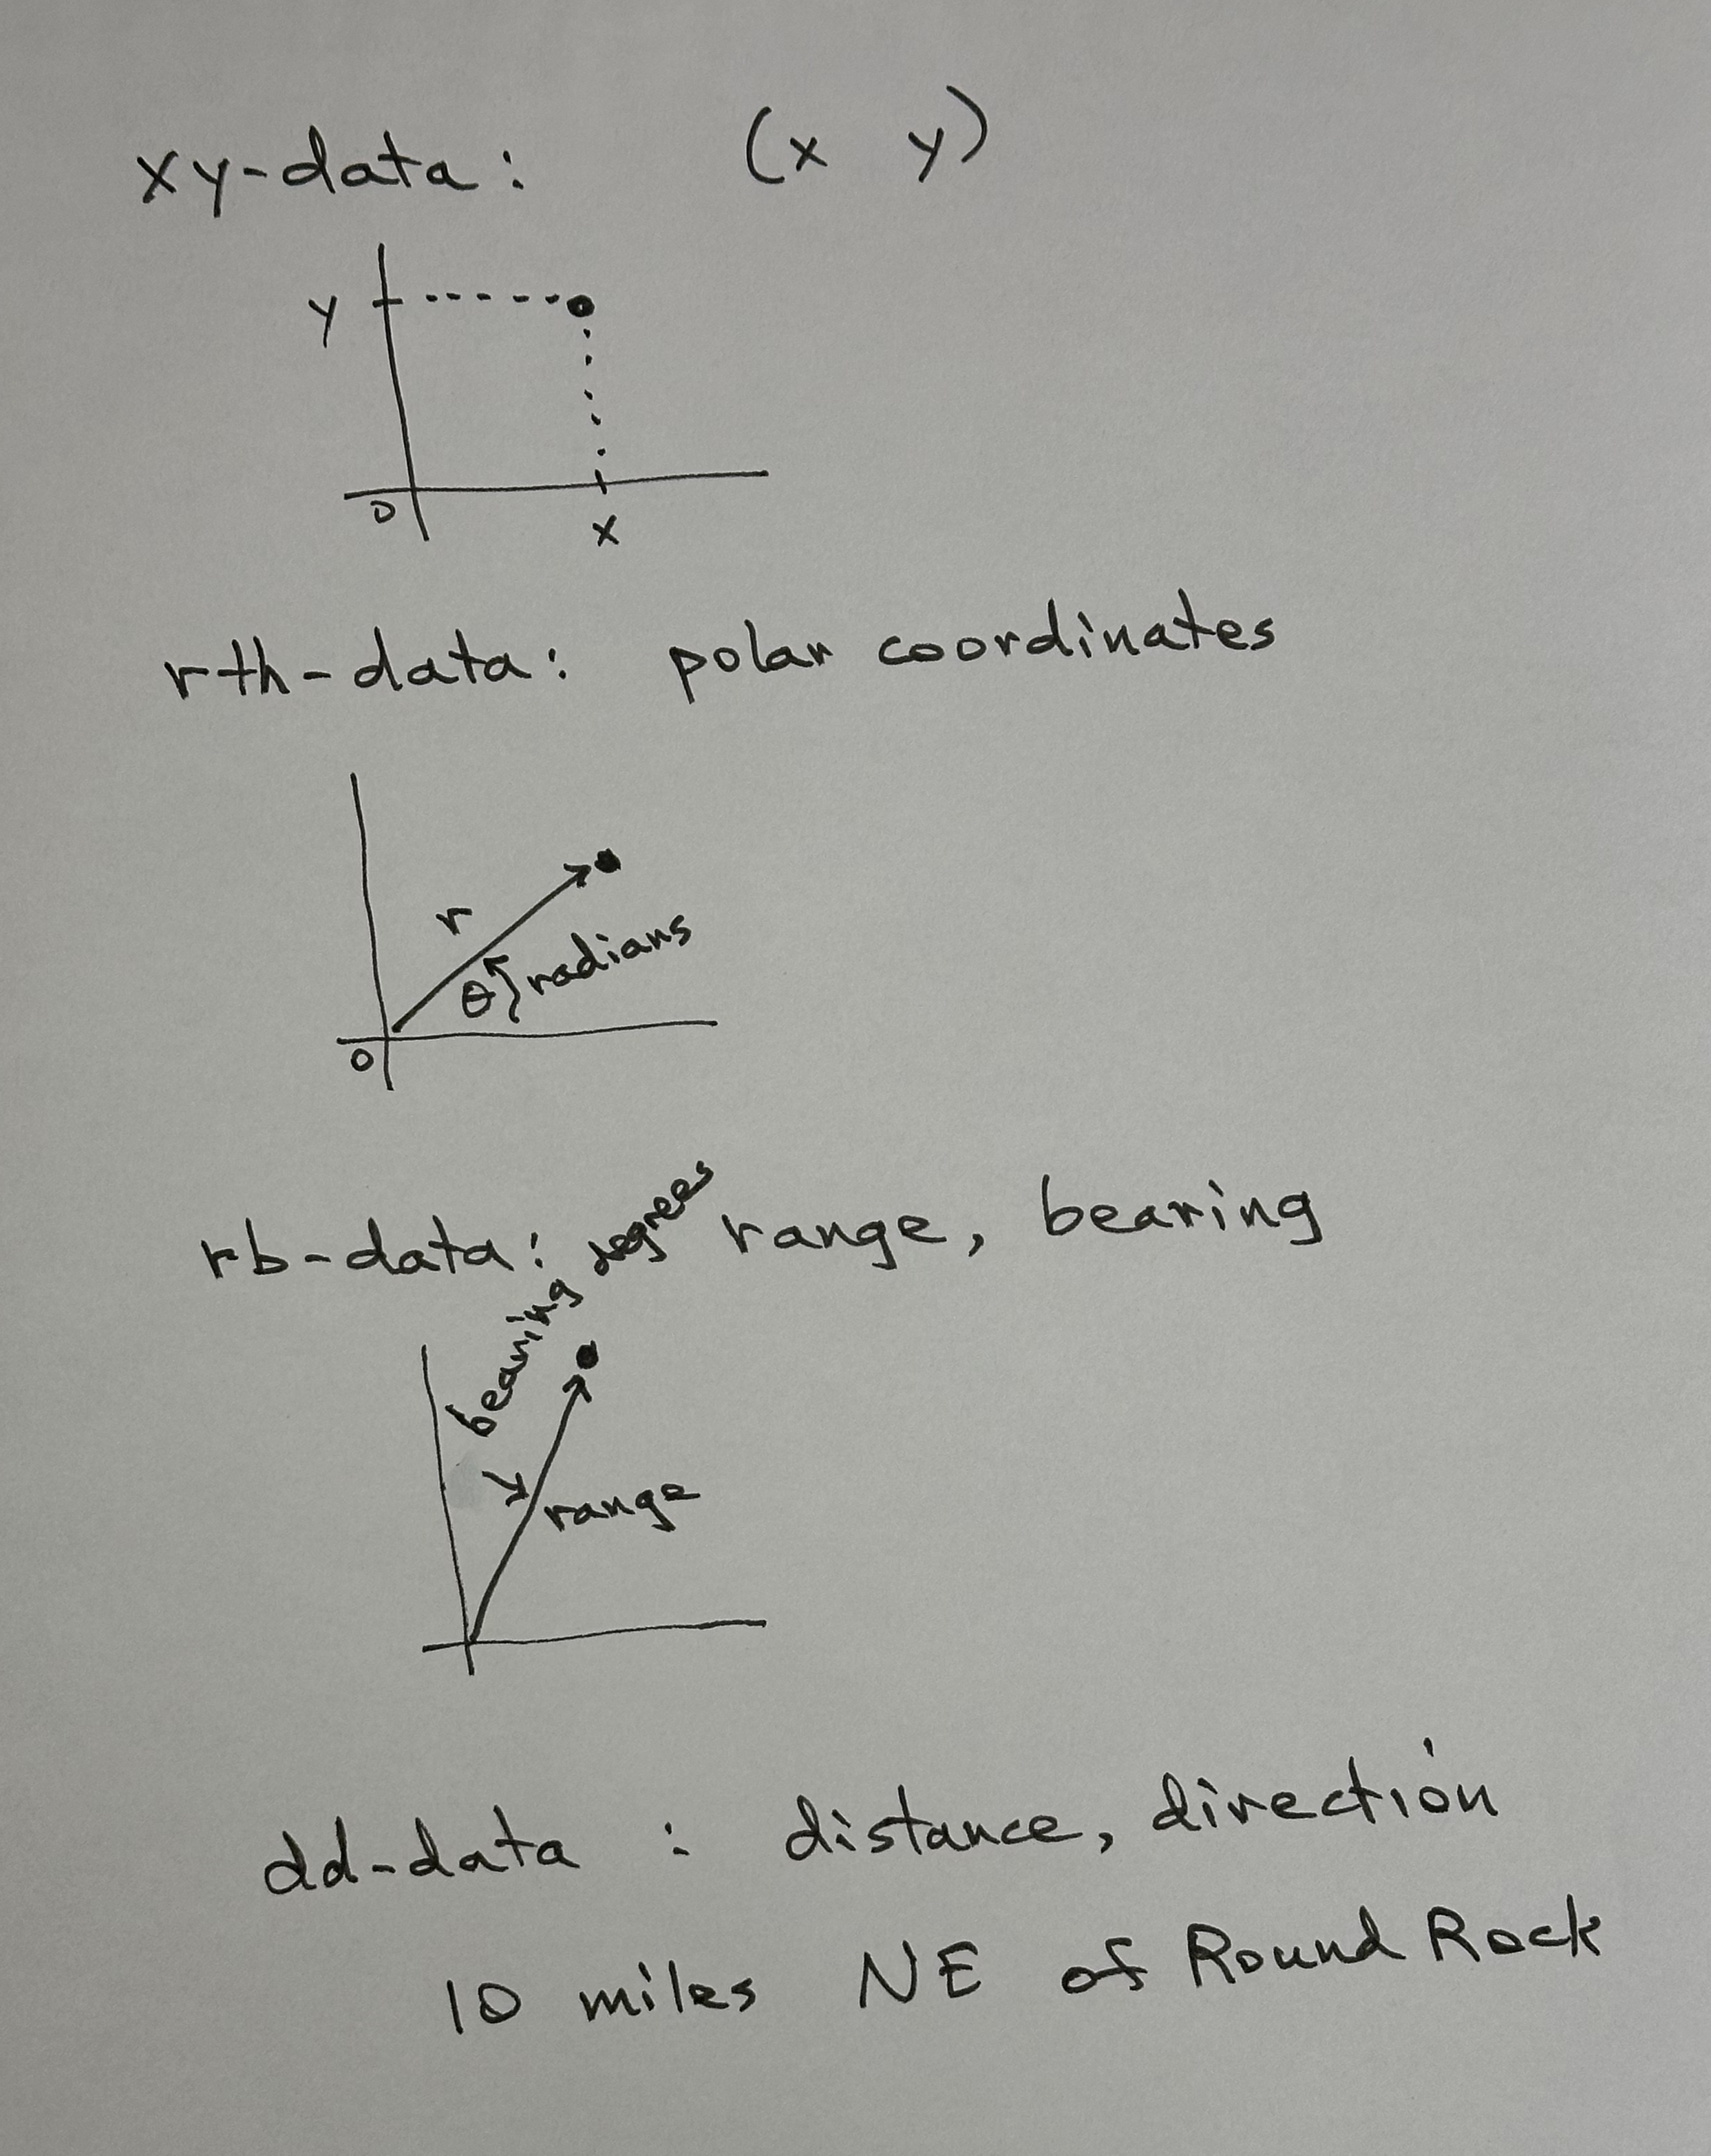 xy-data: (x y)
y
0
x
rth-data: polar coordinates
r
θ radians
0
rb-data: range, bearing
bearing degrees
range
dd-data : distance, direction
10 miles NE of Round Rock